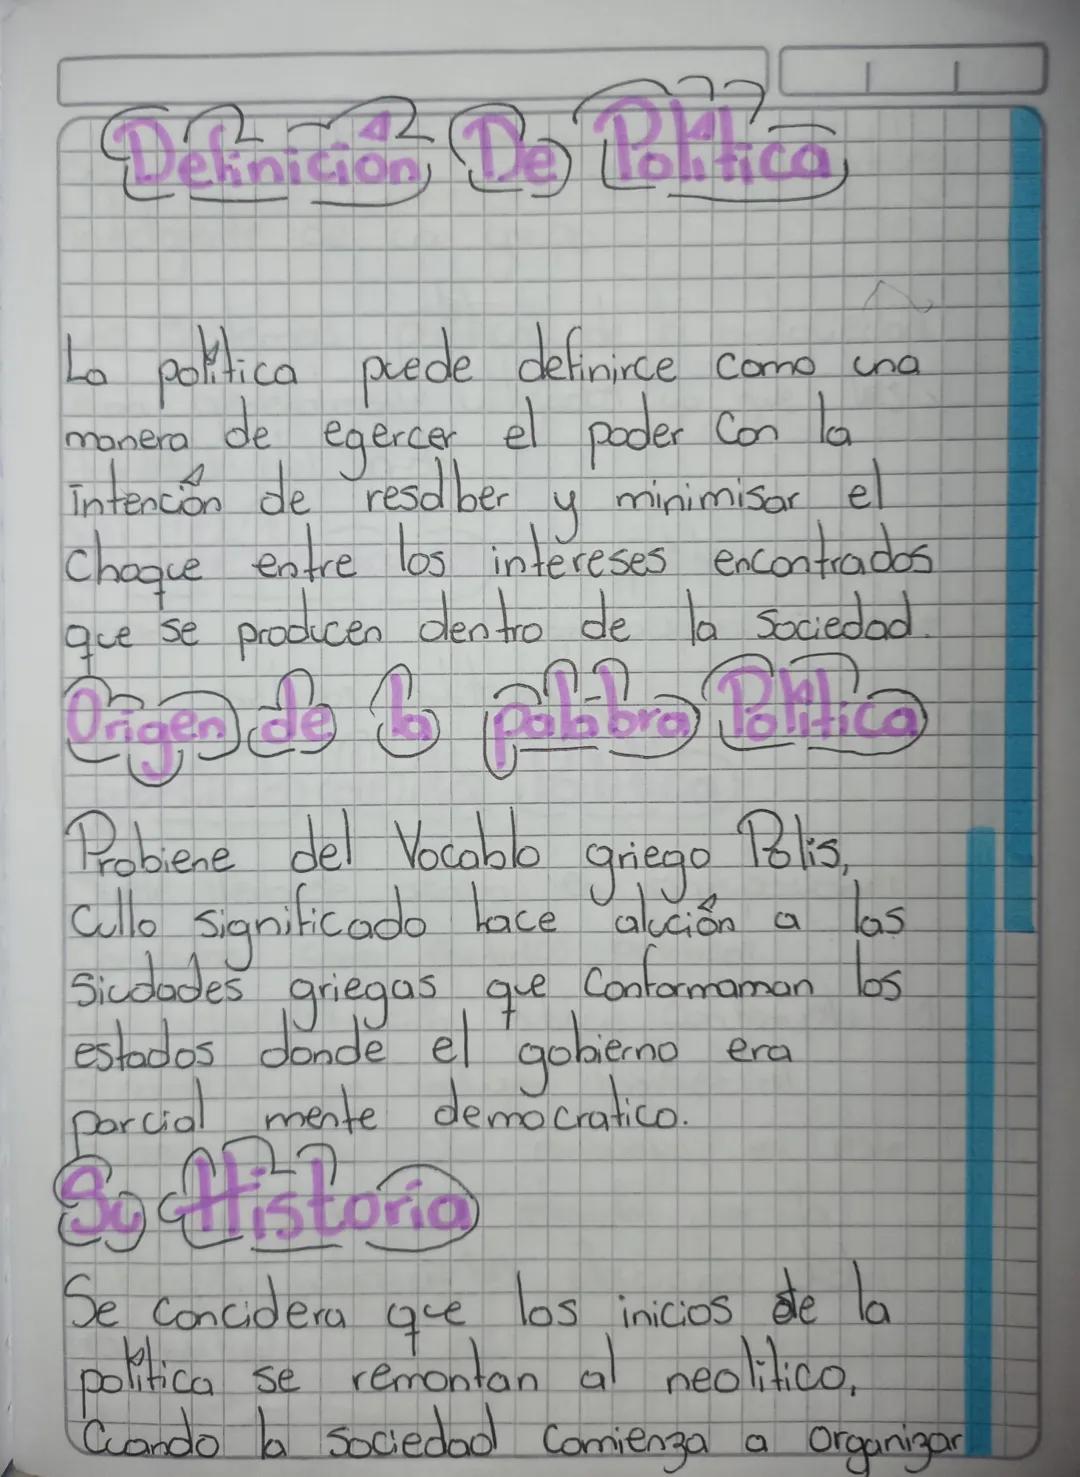 Definición De Política
La política puede definirce como una
manera de egercer el poder con la
intención de resolber y minimisar el
choque entre los intereses encontrados
que se producen dentro de la sociedad.
Origen de la palabra Política
Probiene del Vocablo griego Polis,
cullo significado hace alución a las
siudades griegas que conformaman los
estados donde el gobierno era
parcial mente democratico.
Su Historia
Se concidera que los inicios de la
política se remontan al neolitico,
Cuando la sociedad comienza a organizar